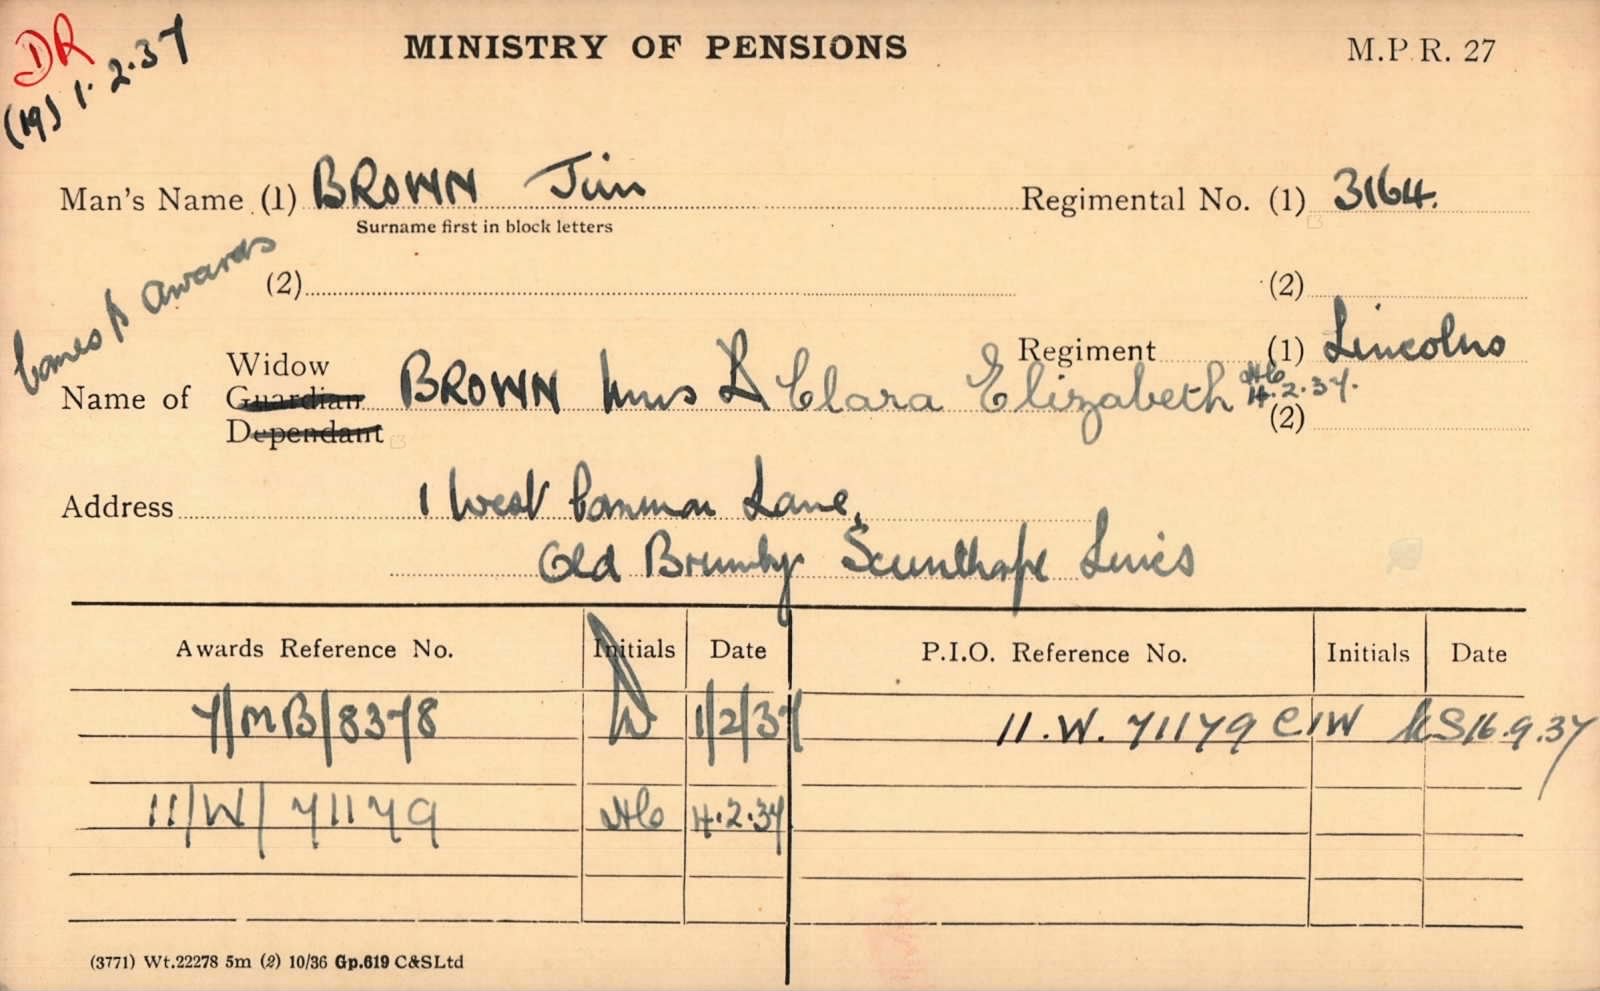 DR
(19) 1.2.37
MINISTRY OF PENSIONS
M.P.R. 27
Man's Name (1) BROWN Jim
Regimental No. (1) 3164.
Surname first in block letters
awards
(2)
(2)
Regiment (1) Lincolns
Widow
Name of Guardian BROWN Mrs Clara Elizabeth HC 4.2.37.
Dependant
(2)
Address 1 West Common Lane,
Old Brumby Scunthorpe Lincs
Awards Reference No. Initials Date P.I.O. Reference No. Initials Date
7/MB/8378 1/2/37 11.W. 71179 CIW KS 16.9.37
11/W/ 71179 HC 4.2.37
(3771) Wt.22278 5m (2) 10/36 Gp.619 C&SLtd